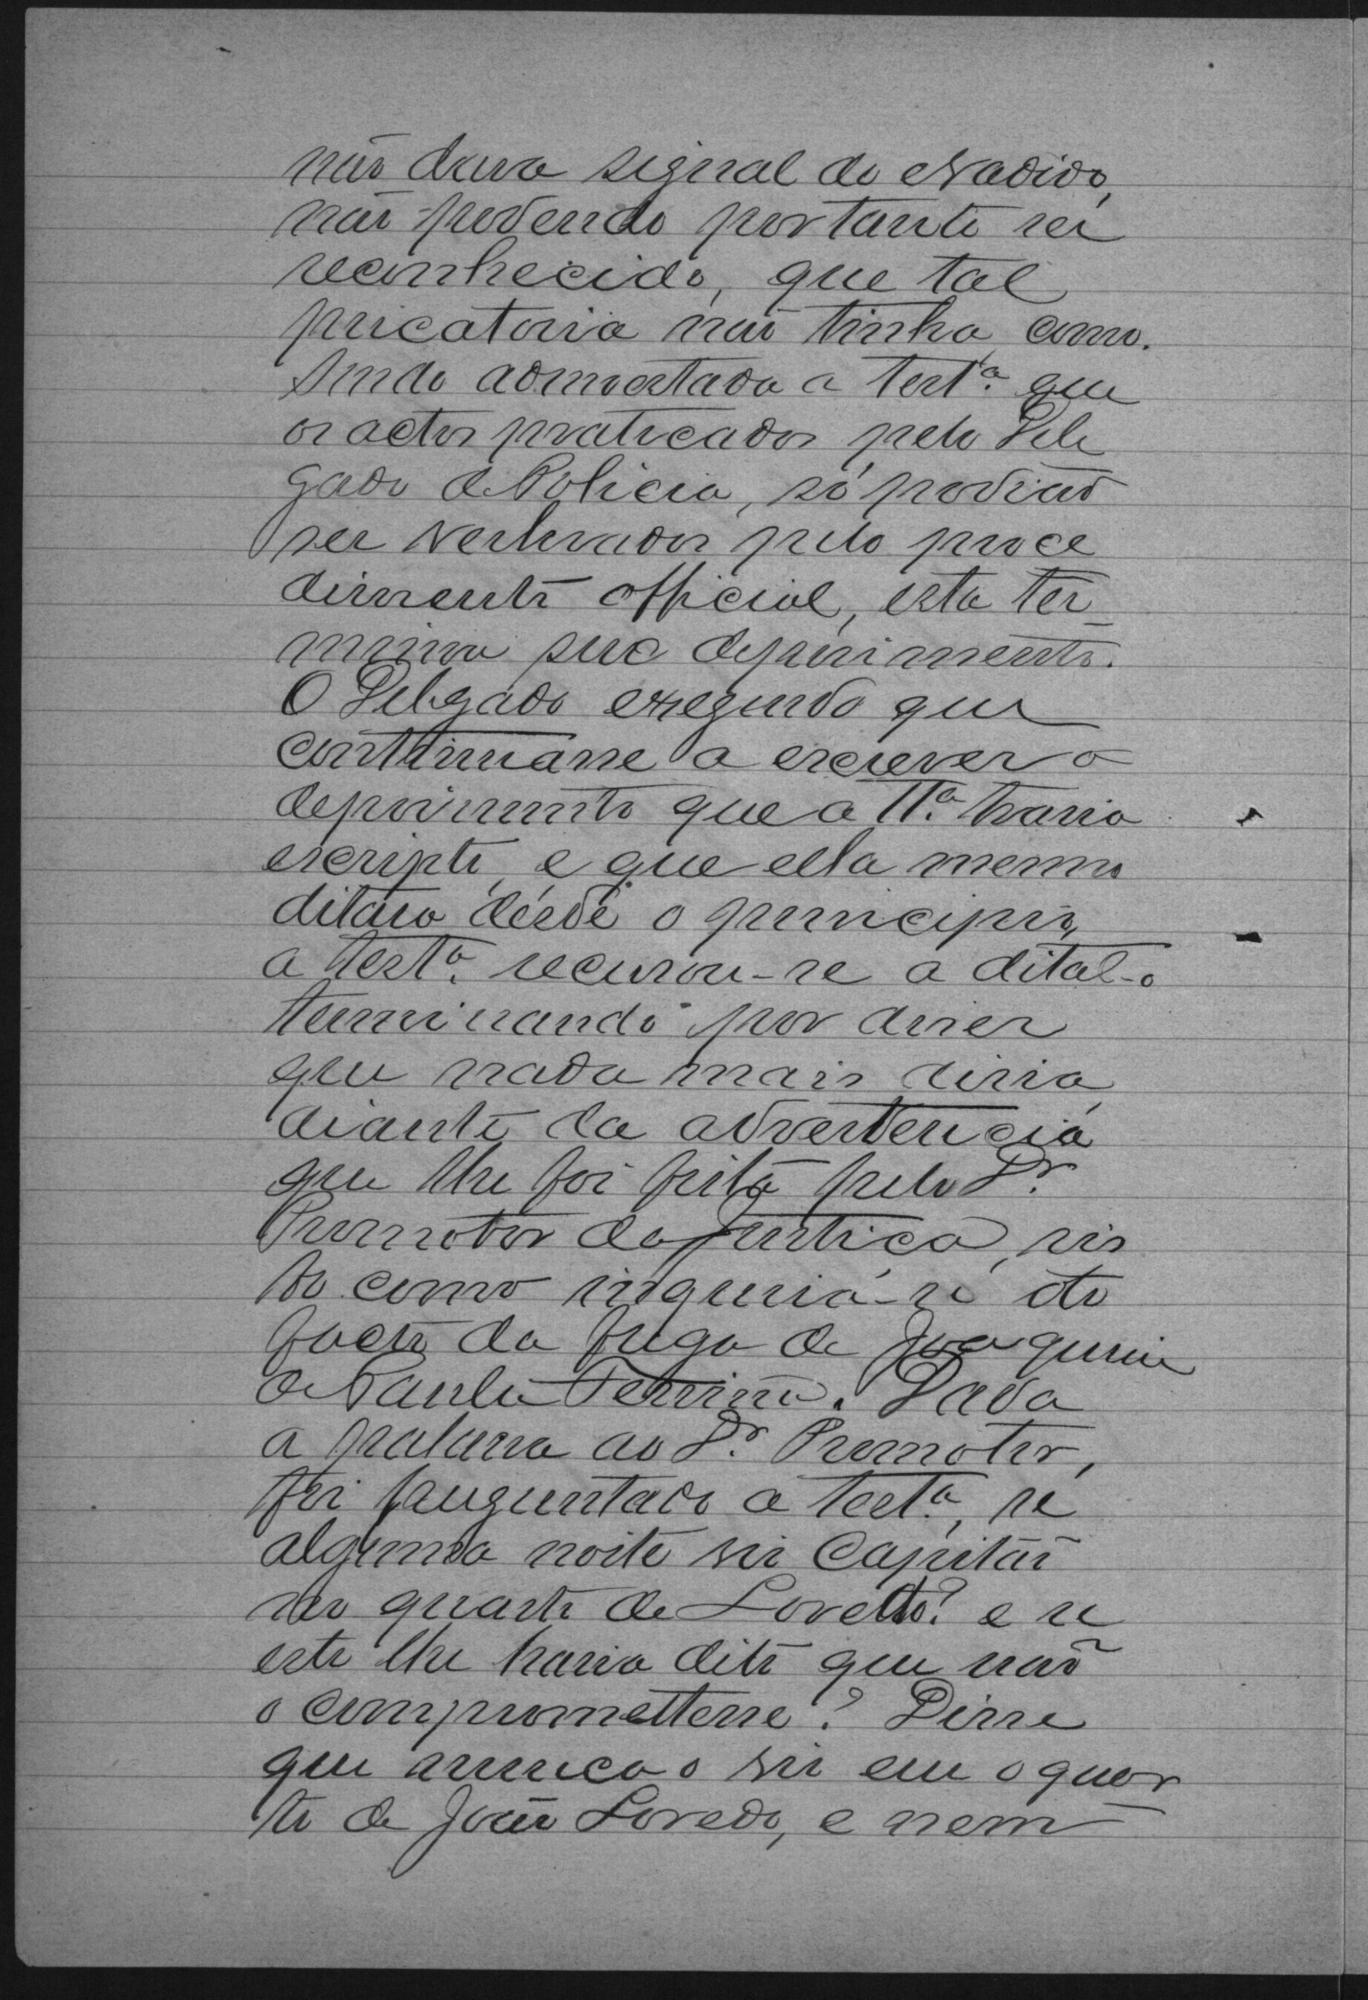 não dava signal do evadido,
não podendo portanto ser
reconhecido, que tal
pricatoria não tinha como.
Sendo admoestada a test.ª que
os actos praticados pelo Dele
gado de Policia, só podião
ser pelo proce
dimento official, esta ter-
minou seu depoimento.
O Delegado exegindo que
continuasse a escrever o
depoimento que a T.ª havia
escripto, e que ella mesmo
ditára désde o principio,
a test.ª recusou-se a dital-o
terminando por diser
que nada mais diria,
diante da advertencia
que lhe foi feita pelo D.r
Promotor da Justiça, vis
to como inqueria-se do
facto da fuga de Joaquim
de Paula Ferreira. Dada
a palavra ao D.r Promotor,
foi preguntado a test.ª, se
alguma noite vio Capitão
no quarto de Loretto? e se
este lhe havia dito que não
o compromettesse? Disse
que nunca o vio em o quar
to de João Loredo, e nem